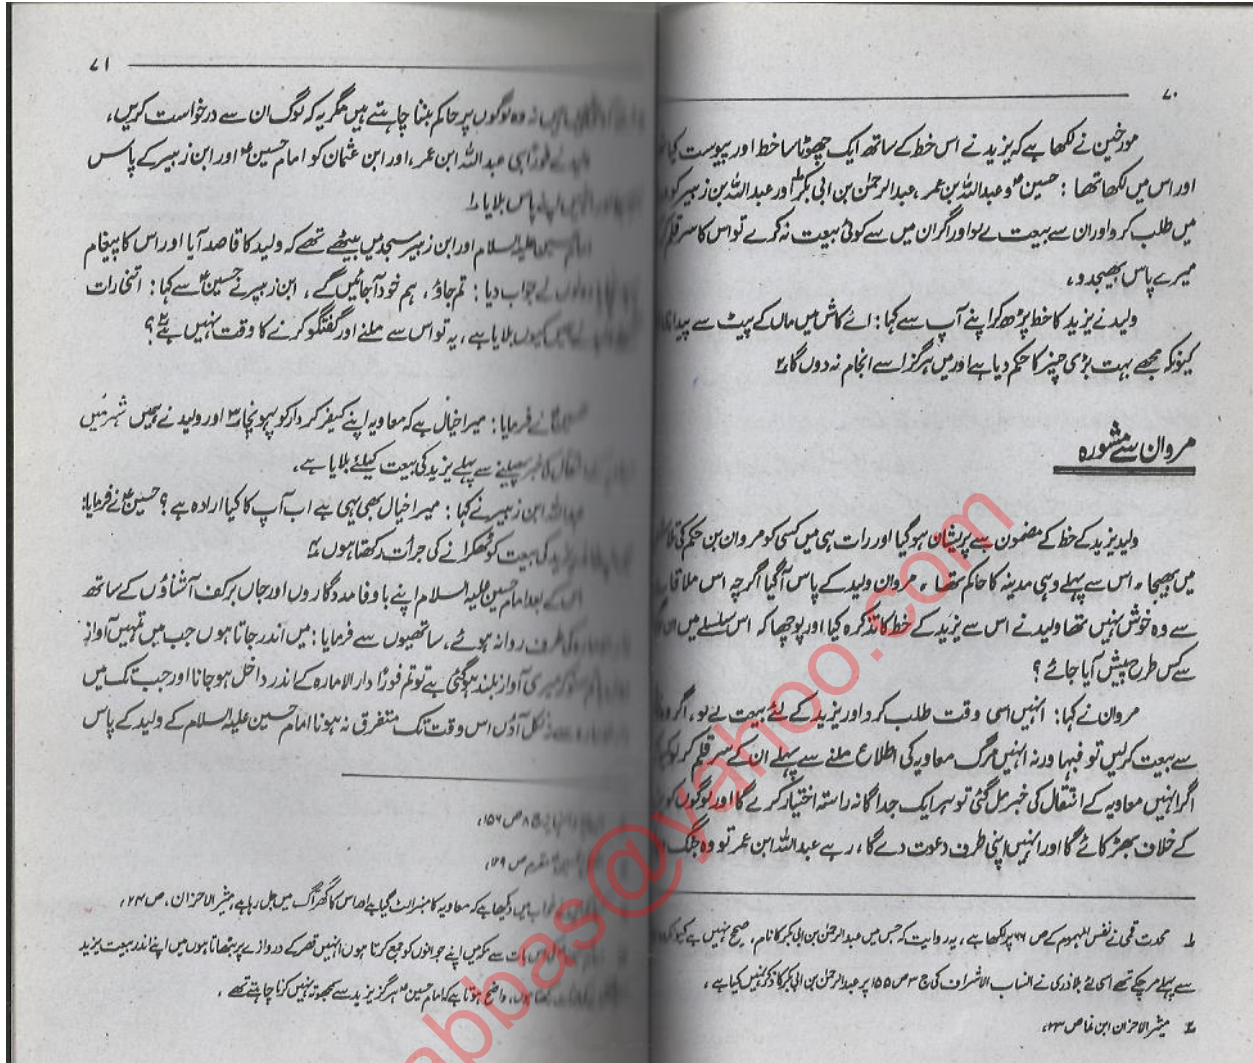 ۷۰
مورخین نے لکھا ہے کہ یزید نے اس خط کے ساتھ ایک چھوٹا سا خط اور پیوست کیا
اور اس میں لکھا تھا : حسینؑ و عبداللہ بن عمر، عبدالرحمٰن بن ابی بکر اور عبداللہ بن زبیر کو
میں طلب کرو اور ان سے بیعت لے لو اور اگر ان میں سے کوئی بیعت نہ کرے تو اس کا سر قلم
میرے پاس بھیجدو،
ولید نے یزید کا خط پڑھ کر اپنے آپ سے کہا : اے کاش میں ماں کے پیٹ سے پیدا
کیونکہ مجھے بہت بڑی چیز کا حکم دیا ہے اور میں ہرگز اسے انجام نہ دوں گا ۲
مروان سے مشورہ
ولید یزید کے خط کے مضمون سے پریشان ہو گیا اور رات ہی میں کسی کو مروان بن حکم کی
میں بھیجا ۔ اس سے پہلے وہی مدینہ کا حاکم تھا ۔ مروان ولید کے پاس آ گیا اگرچہ اس ملاقات
سے وہ خوش نہیں تھا ولید نے اس سے یزید کے خط کا تذکرہ کیا اور پوچھا کہ اس سلسلے میں
سے کس طرح پیش آیا جائے ؟
مروان نے کہا : انہیں اسی وقت طلب کرو اور یزید کے لئے بیعت لے لو، اگر وہ
سے بیعت کر لیں تو فبہا ورنہ انہیں مرگ معاویہ کی اطلاع ملنے سے پہلے ان کے سر قلم کر لو
اگر انہیں معاویہ کے انتقال کی خبر مل گئی تو ہر ایک جداگانہ راستہ اختیار کرے گا اور لوگوں کو
کے خلاف بھڑکائے گا اور انہیں اپنی طرف دعوت دے گا، رہے عبداللہ ابن عمر تو وہ جنگ
۱ محدث قمی نے نفس المہموم کے ص ۶۶ پر لکھا ہے، یہ روایت کہ جس میں عبدالرحمٰن بن ابی بکر کا نام، صحیح نہیں ہے کیونکہ
سے پہلے مر چکے تھے اسی لئے بلاذری نے انساب الاشراف کی ج ۳ ص ۱۵۵ پر عبدالرحمٰن بن ابی بکر کا ذکر نہیں کیا ہے،
۲ مثیر الاحزان ابن نما ص ۲۳،
۷۱
نہ وہ لوگوں پر حاکم بننا چاہتے ہیں مگر یہ کہ لوگ ان سے درخواست کریں،
ولید نے فوراً ہی عبداللہ ابن عمر، اور ابن عثمان کو امام حسینؑ اور ابن زبیر کے پاس
اپنے پاس بلایا ۱
امام حسین علیہ السلام اور ابن زبیر مسجد میں بیٹھے تھے کہ ولید کا قاصد آیا اور اس کا پیغام
دونوں نے جواب دیا : تم جاؤ، ہم خود آجائیں گے، ابن زبیر نے حسینؑ سے کہا : اتنی رات
کیوں بلایا ہے، یہ تو اس سے ملنے اور گفتگو کرنے کا وقت نہیں ہے ۲ ؟
نے فرمایا : میرا خیال ہے کہ معاویہ اپنے کیفر کردار کو پہونچا ۳ اور ولید نے ہمیں شہر میں
انتقال کی خبر پھیلنے سے پہلے یزید کی بیعت کیلئے بلایا ہے،
عبداللہ ابن زبیر نے کہا : میرا خیال بھی یہی ہے اب آپ کا کیا ارادہ ہے ؟ حسینؑ نے فرمایا:
یزید کی بیعت کو ٹھکرانے کی جرأت رکھتا ہوں ۴
اس کے بعد امام حسین علیہ السلام اپنے باوفا مددگاروں اور جاں برکف آشناؤں کے ساتھ
کی طرف روانہ ہوئے، ساتھیوں سے فرمایا : میں اندر جاتا ہوں جب میں تمہیں آواز
میری آواز بلند ہو گئی ہے تو تم فوراً دارالامارہ کے اندر داخل ہو جانا اور جب تک میں
سے نہ نکل آؤں اس وقت تک متفرق نہ ہونا امام حسین علیہ السلام کے ولید کے پاس
ج ۸ ص ۱۵۶،
مقرم ص ۱۲۹،
خواب میں دیکھا ہے کہ معاویہ کا منبر الٹ گیا ہے اور اس کا گھر آگ میں جل رہا ہے، مثیر الاحزان، ص ۲۴،
اس بات سے کہ میں اپنے جوانوں کو جمع کرتا ہوں انہیں قصر کے دروازے پر بٹھاتا ہوں میں اپنے اندر بیعت یزید
واضح ہوتا ہے کہ امام حسینؑ ہرگز یزید سے سمجھوتہ نہیں کرنا چاہتے تھے،
abbas@yahoo.com